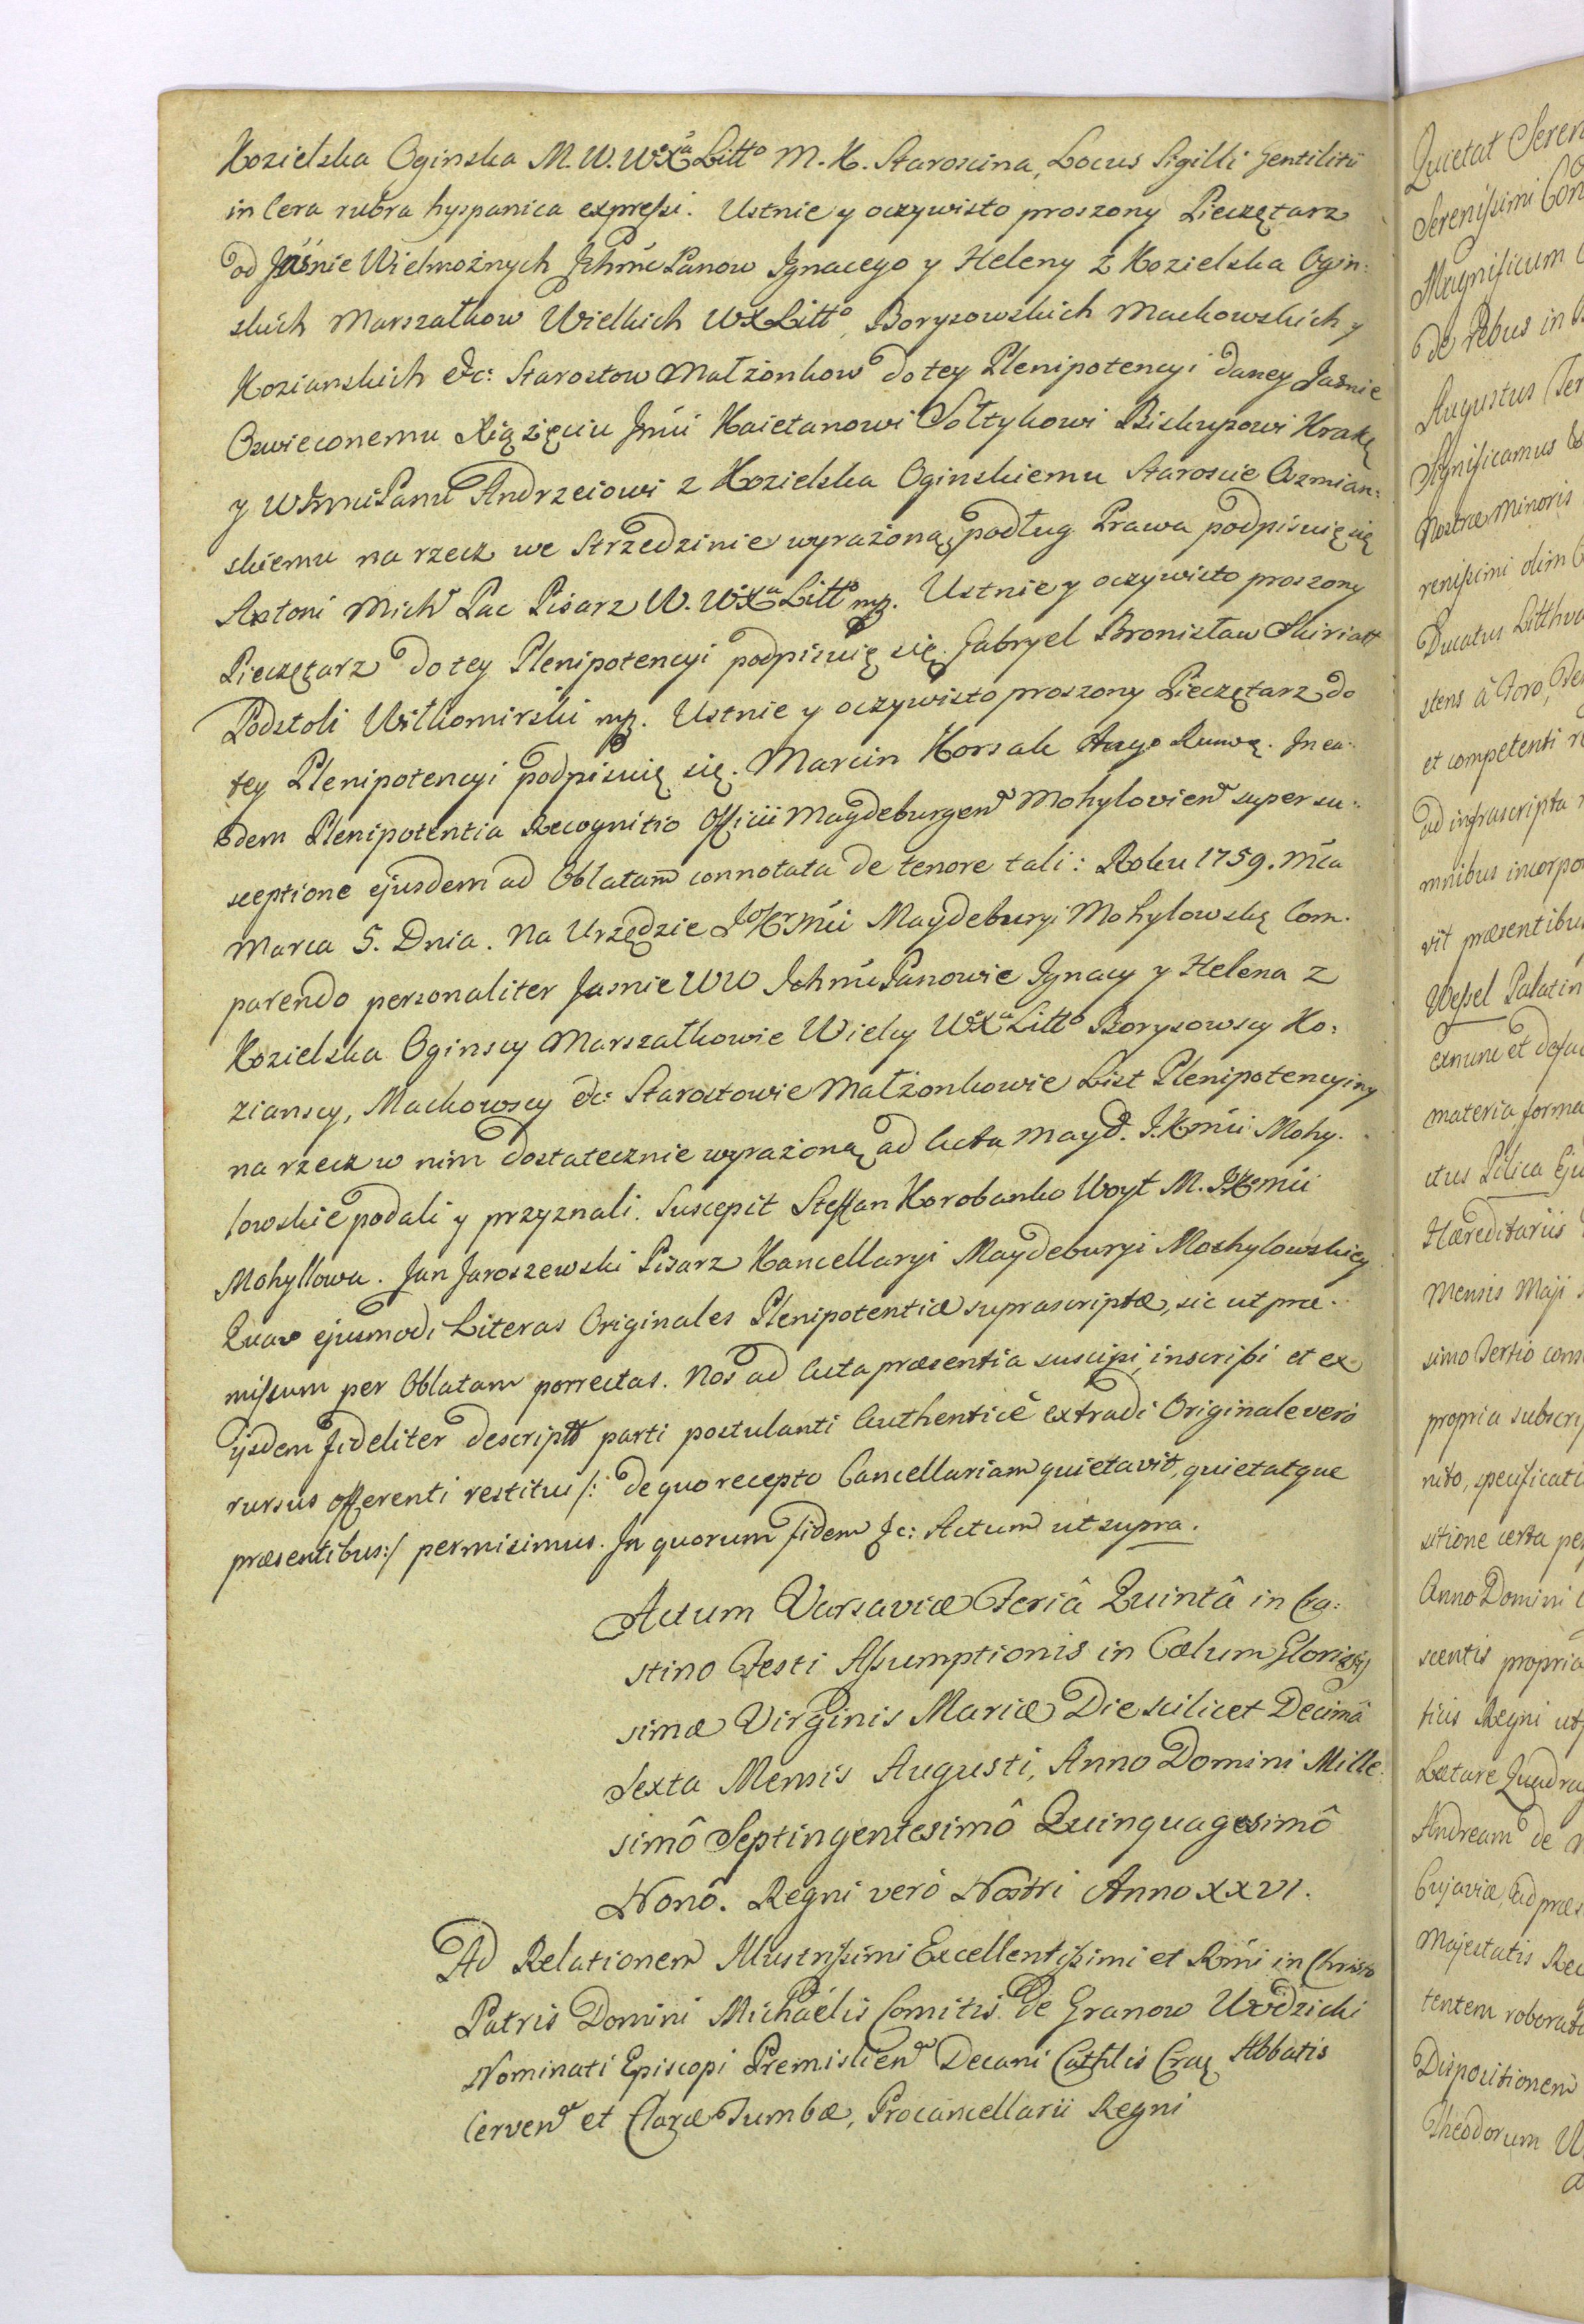 Kozielska Oginska M. W. WXa Litto M. K. Starościna, Locus Sigilli Gentilitii
in Cera rubra hyspanica expressi. Ustnie y oczywisto proszony Pieczętarz
od Jaśnie Wielmożnych Jchmć Panow Jgnacego y Heleny z Kozielska Ogin:
skich Marszałkow Wielkich WXLitto, Borysowskich Mackowskich y
Kozianskich &c: Starostow Małżonkow do tey Plenipotencyi daney Jaśnie
Oswieconemu Xiążęciu Jmći Kaietanowi Sołtykowi Biskupowi Krakę
y WJmći Panu Andrzeiowi z Kozielska Oginskiemu Staroscie Oszmian:
skiemu na rzecz we Strzedzinie wyrażoną, podług Prawa podpisuię się
Antoni Michł Pac Pisarz W. WXa Litto mp. Ustnie y oczywisto proszony
Pieczętarz do tey Plenipotencyi podpisuię się. Gabryel Bronisław Skiriatt
Podstoli Wiłkomirski mp. Ustnie y oczywisto proszony Pieczętarz do
tey Plenipotencyi podpisuię się. Marcin Korsak. In ea-
dem Plenipotentia Recognitio Officii Magdeburgen Mohylovien super su:
sceptione ejusdem ad Oblatam connotata de tenore tali: Roku 1759. Mca
Marca 5. Dnia. Na Urzędzie JoKrMći Maydeburyi Mohylowskę Com-
parendo personaliter Jasnie WW Jchmć Panowie Jgnacy y Helena z
Kozielska Oginscy Marszałkowie Wielcy WXa Litto Borysowscy Ko:
zianscy, Mackowscy &c: Starostowie Małżonkowie List Plenipotencyiny
na rzecz w nim dostatecznie wyrażoną ad Acta Mayd. J.Kmći Mohy-
lowskie podali y przyznali. Suscepit Steffan Korobanko Woyt M. JKmći
Mohyllowa. Jan Jaroszewski Pisarz Kancellaryi Maydeburyi Mohylowskiey
Quas ejusmodi Literas Originales Plenipotentiæ suprascriptæ, sic ut præ-
missum per Oblatam porrectas. Nos ad Acta præsentia suscipi, inscribi et ex
ijsdem fideliter descriptt parti postulanti Authenticè extradi Originale verò
rursus offerenti restitui /: de quo recepto Cancellariam quietavit, quietatque
præsentibus:/ permisimus. In quorum fidem &c: Actum ut supra.
Actum Varsaviæ Feriâ Quintâ in Cra:
stino Festi Assumptionis in Cælum Glorio[sis]
simæ Virginis Mariæ Die scilicet Decimâ
Sexta Mensis Augusti, Anno Domini Mille:
simô Septingentesimô Quinquagesimô
Nonô. Regni verò Nostri Anno XXVI.
Ad Relationem Illustrissimi Excellentissimi et Rmi in Christo
Patris Domini Michaélis Comitis de Granow Wodzicki
Nominati Episcopi Premislien Decani Cathlis Crac Abbatis
Cerven et Claræ Tumbæ, Procancellarii Regni
Quietat Seren
Serenissimi Con
Magnificum
de Rebus in
Augustus Ter
Significamus
Nostræ Minoris
renissimi olim
Ducatus Litthva
stens â Foro,
et competenti
ad infrascripta
mnibus incorpo
vit præsentibus
Wessel Palatin
exnunc et defac
materia forma
ctus Pilica Eju
Hæreditariis
Mensis Maji
simo Tertio cons
propria subscri
nito, specificati
sitione certa per
Anno Domini
scentis propria
ticis Regni ut
Lætare Quadrag
Andream de
Cujaviæ, Ad præs
Majestatis Rec
tentem roborata
Dispositionem
Theodorum W